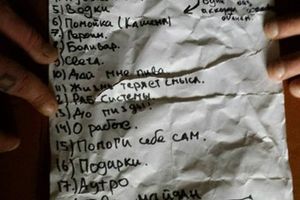 5) Водки
6) Помойка (Кашена)
7) Героин.
8) Боливар.
9) Света.
10) Дай мне пива
11) Жизнь теряет смысл.
12) Раб системы.
13) До пизды!
14) О работе.
15) Помоги себе сам.
16) Подарки.
17) Аутро